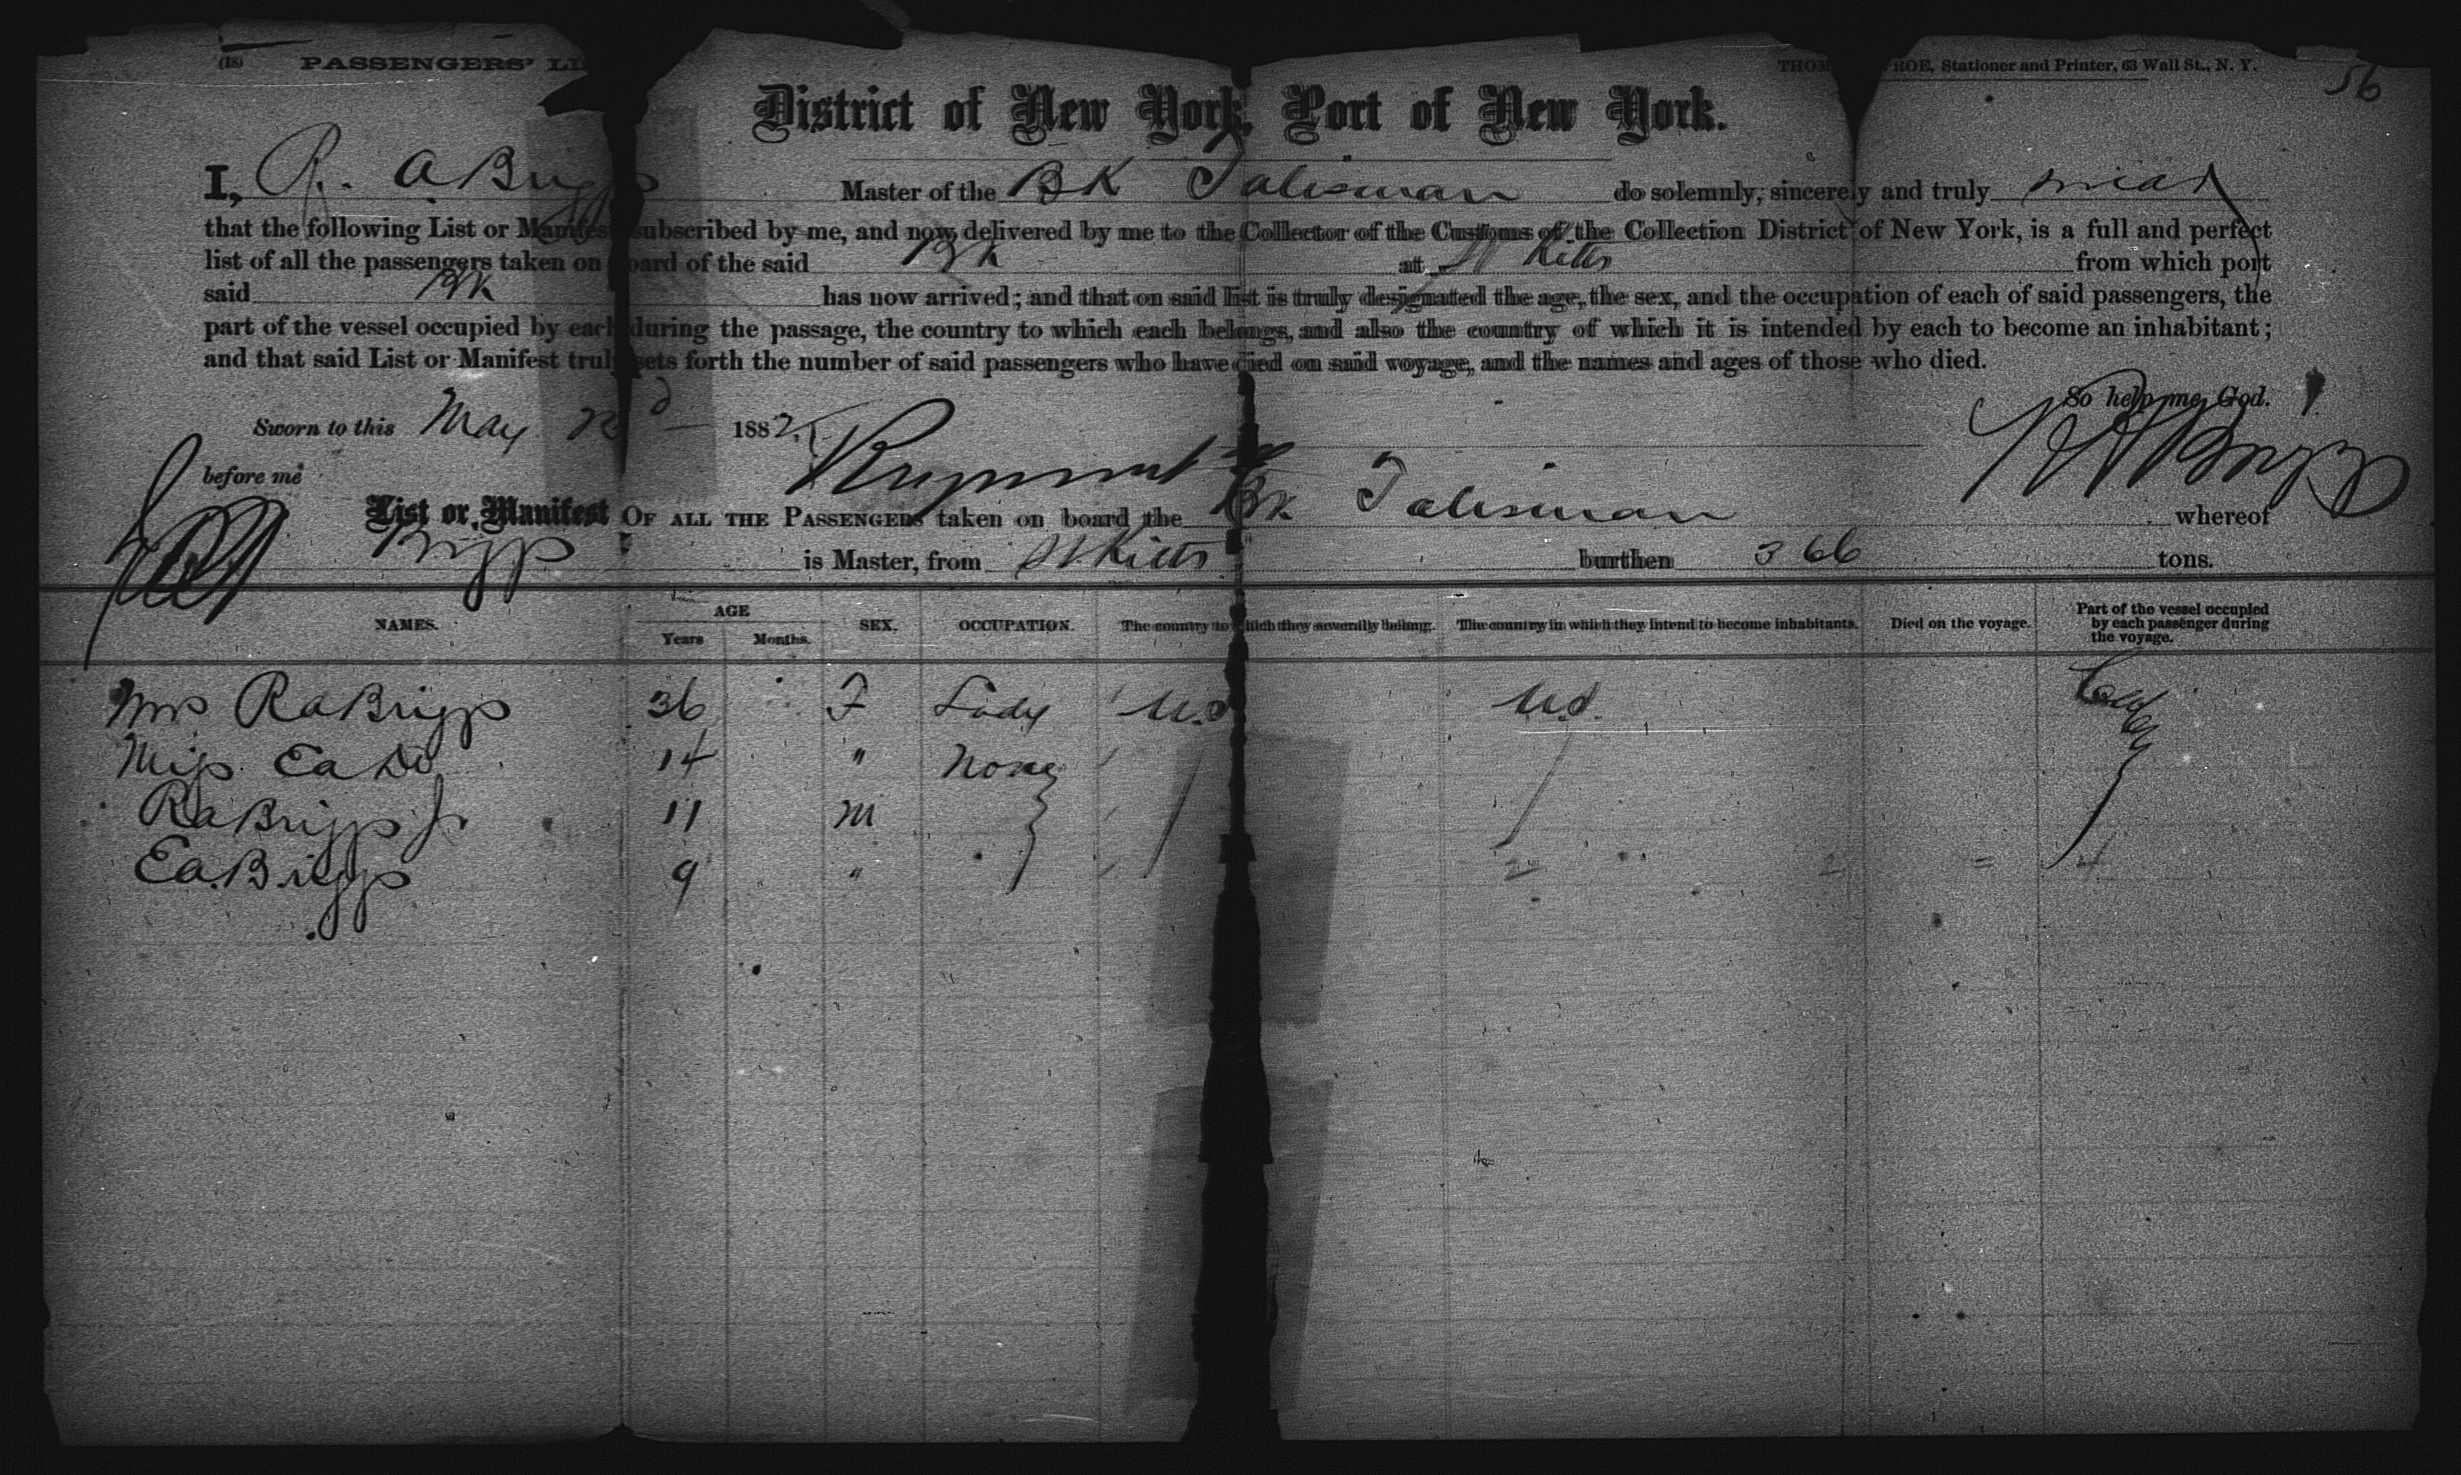 (18) PASSENGERS' LI
THOM ROE, Stationer and Printer, 63 Wall St., N. Y.
56
District of New York, Port of New York.
I, R. A Briggs Master of the BK Talisman do solemnly, sincerely and truly swear
that the following List or Manifest subscribed by me, and now delivered by me to the Collector of the Customs of the Collection District of New York, is a full and perfect
list of all the passengers taken on board of the said Bk at St Kitts from which port
said Bk has now arrived; and that on said list is truly designated the age, the sex, and the occupation of each of said passengers, the
part of the vessel occupied by each during the passage, the country to which each belongs, and also the country of which it is intended by each to become an inhabitant;
and that said List or Manifest truly sets forth the number of said passengers who have died on said voyage, and the names and ages of those who died.
So help me God.
Sworn to this May 22d 1882, R A Briggs
before me
List or Manifest OF ALL THE PASSENGERS taken on board the Bk Talisman whereof
Briggs is Master, from St Kitts burthen 366 tons.
NAMES. AGE Years Months. SEX. OCCUPATION. The country to which they severally belong. The country in which they intend to become inhabitants. Died on the voyage. Part of the vessel occupied by each passenger during the voyage.
Mrs Ra Briggs 36 F Lady U.S U.S. Cabin
Miss Ea Do 14 " None
Ra Briggs Jr 11 M
Ea. Briggs 9 " 2 2 = 4